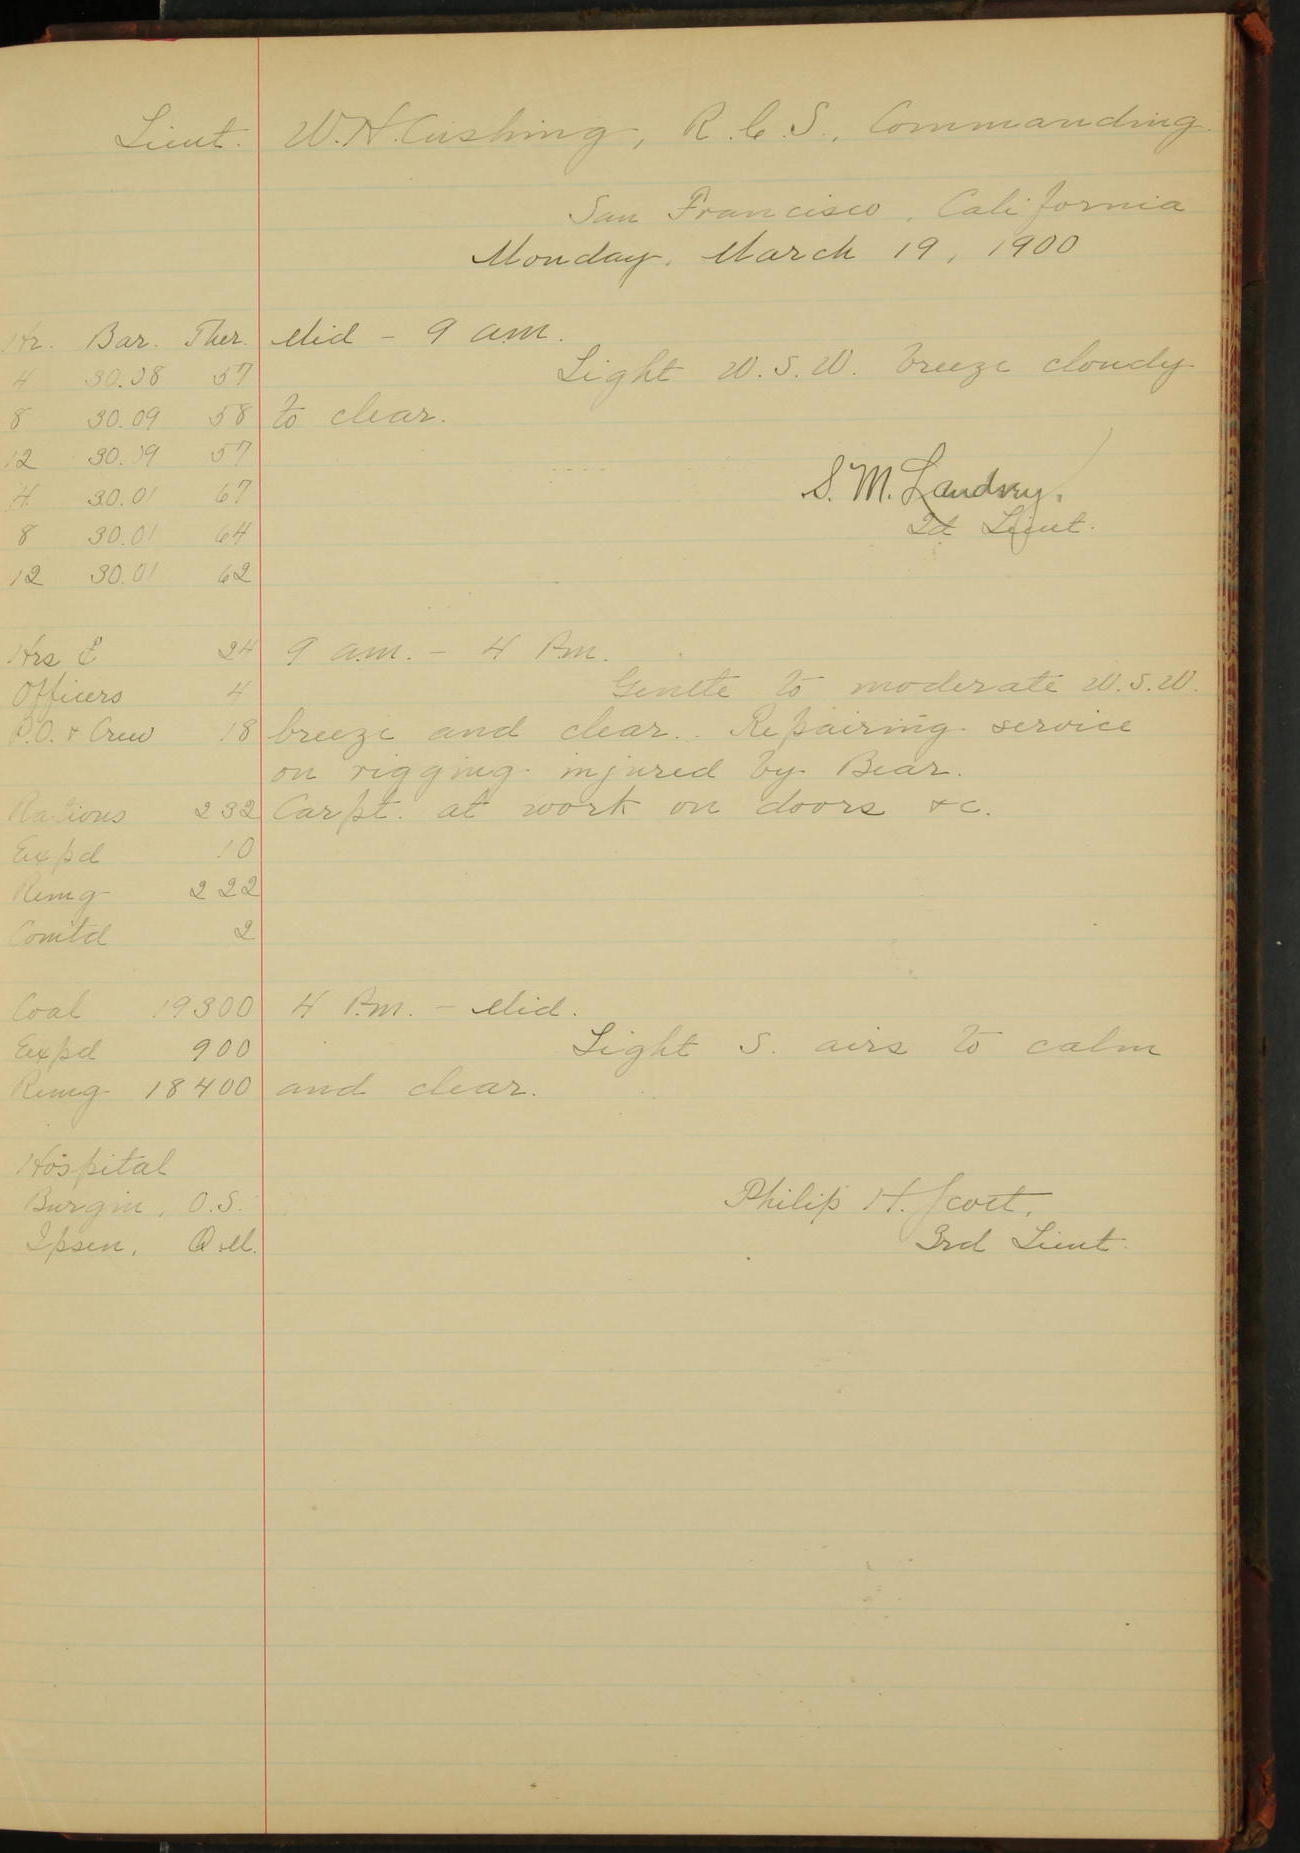 Lieut. W. H. Cushing, R. C. S., Commanding.
San Francisco, California
Monday, March 19, 1900
Hr. Bar. Ther. Mid - 9 am.
4 30.08 57 Light W. S. W. breeze cloudy
8 30.09 58 to clear.
12 30.09 57
4 30.01 67 S. M. Landrey.
8 30.01 64 2d Lieut.
12 30.01 62
Hrs 24 9 a.m. - 4 P.m.
Officers 4 Genlte to moderate W. S. W.
P.O. & Crew 18 breeze and clear. Repairing service
on rigging injured by Bear.
Rations 232 Carpt. at work on doors &c.
Expd 10
Remg 222
Comtd 2
Coal 19300 4 P.m. - Mid.
Expd 900 Light S. airs to calm
Remg 18400 and clear.
Hospital
Burgin, O.S. Philip H. Scott,
Ipsen, Q.M. 3rd Lieut.